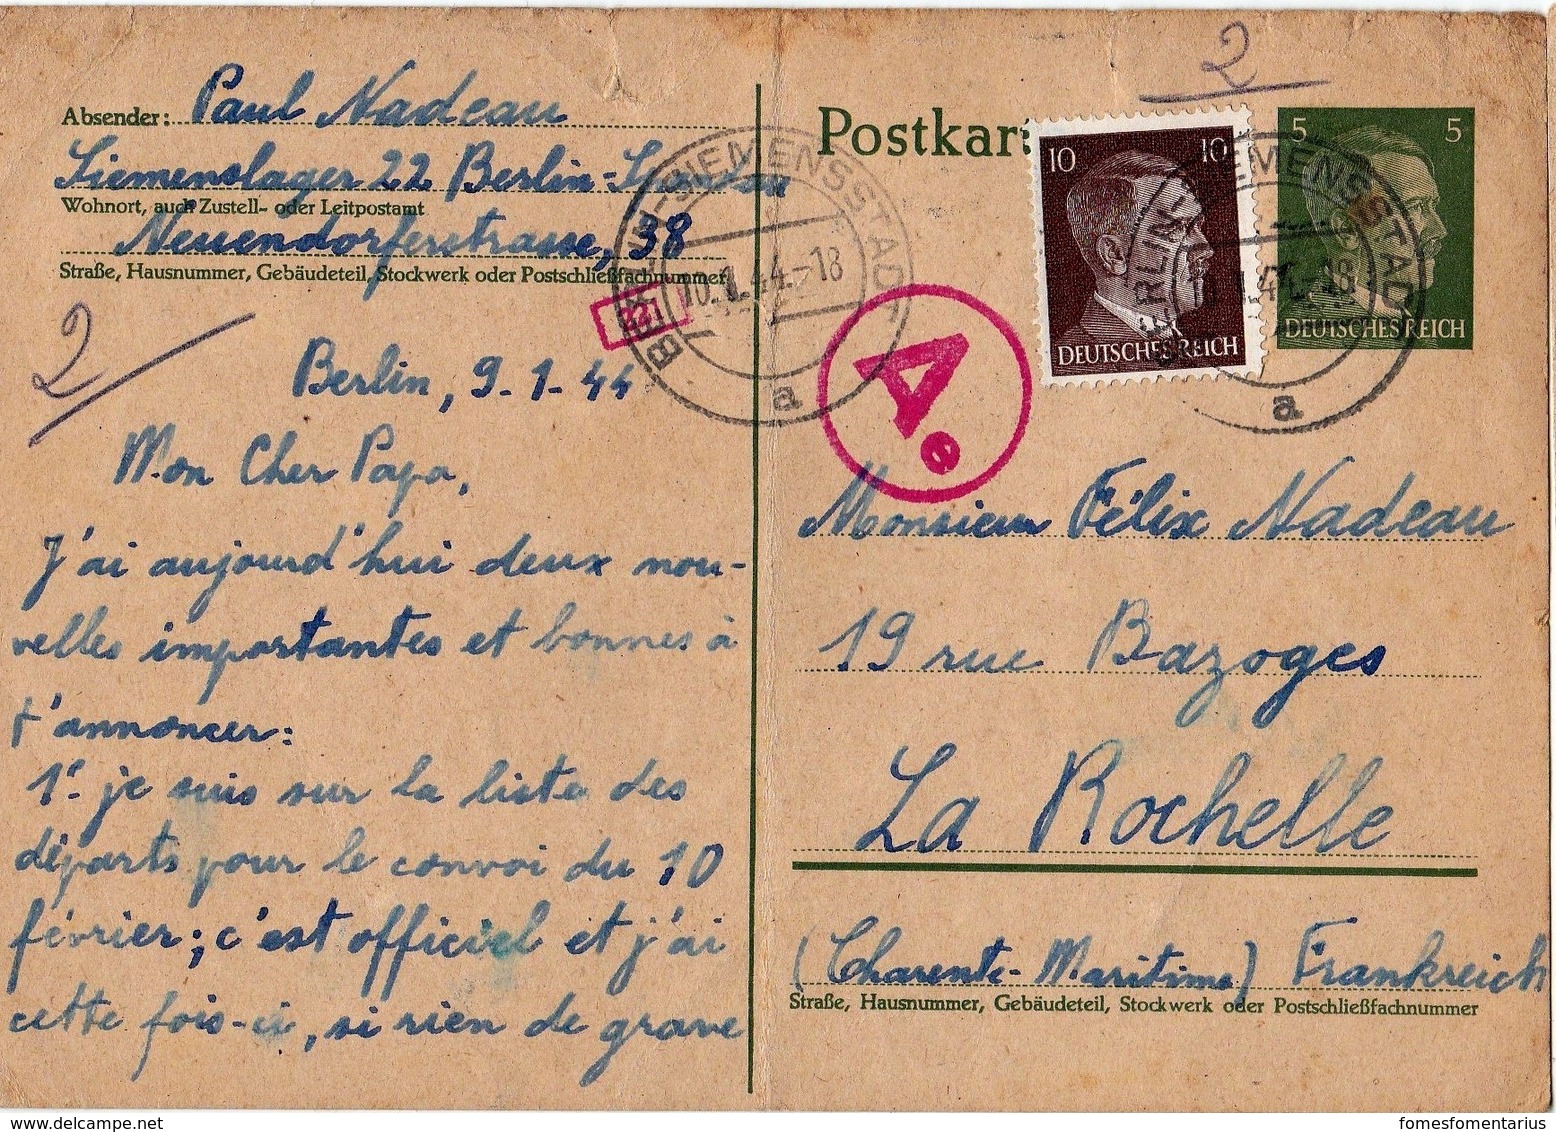 Absender: Paul Nadeau
Siemenslager 22 Berlin-
Wohnort, auch Zustell- oder Leitpostamt
Neuendorferstrasse, 38
Straße, Hausnummer, Gebäudeteil, Stockwerk oder Postschließfachnummer
2
Berlin, 9-1-44
Mon Cher Papa,
J'ai aujourd'hui deux nou-
velles importantes et bonnes à
t'annoncer:
1º je suis sur la liste des
départs pour le convoi du 10
février; c'est officiel et j'ai
cette fois-ci, si rien de grave
BERLIN-SIEMENSSTADT
10.1.44.-18
a
Ae
2
Postkar
10 10
DEUTSCHES REICH
5 5
DEUTSCHES REICH
BERLIN-SIEMENSSTADT
44.-18
a
Monsieur Félix Nadeau
19 rue Bazoges
La Rochelle
(Charente-Maritime) Frankreich
Straße, Hausnummer, Gebäudeteil, Stockwerk oder Postschließfachnummer
delcampe.net
fomesfomentarius